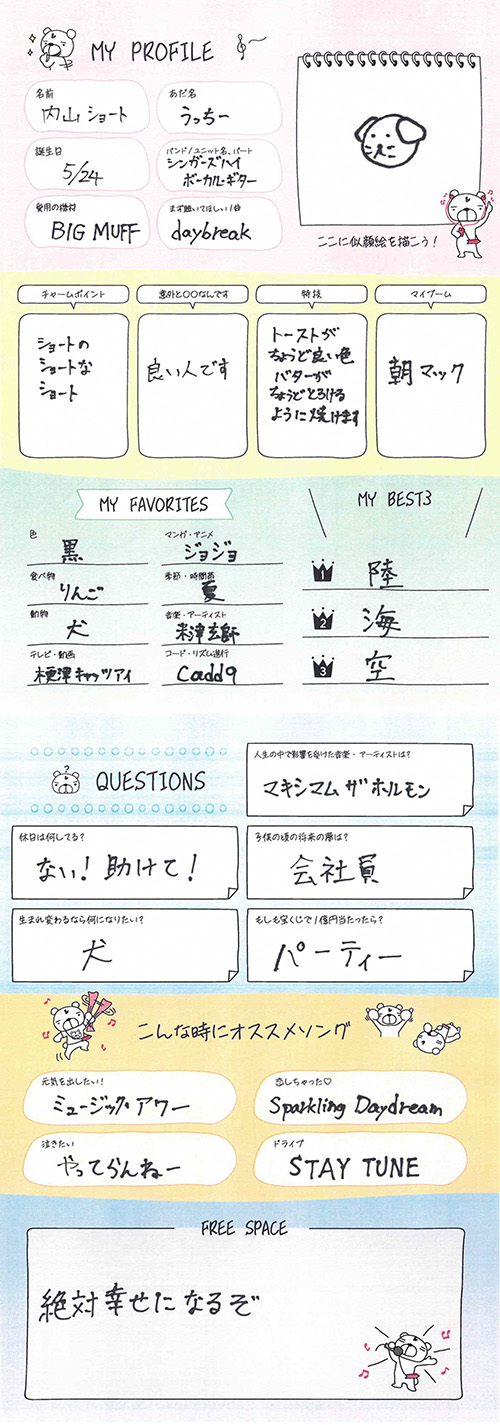 MY PROFILE
名前
内山ショート
あだ名
うっちー
誕生日
5/24
バンド/ユニット名、パート
シンガーズハイ
ボーカル・ギター
愛用の機材
BIG MUFF
まず聴いてほしい1曲
daybreak
ここに似顔絵を描こう!
チャームポイント
ショートの
ショートな
ショート
意外と〇〇なんです
良い人です
特技
トーストが
ちょうど良い色
バターが
ちょうどとろける
ように焼けます
マイブーム
朝マック
MY FAVORITES
色
黒
マンガ・アニメ
ジョジョ
食べ物
りんご
季節・時間帯
夏
動物
犬
音楽・アーティスト
米津玄師
テレビ・動画
木更津キャッツアイ
コード・リズム進行
Cadd9
MY BEST3
1
陸
2
海
3
空
QUESTIONS
人生の中で影響を受けた音楽・アーティストは?
マキシマムザホルモン
休日は何してる?
ない!助けて!
子供の頃の将来の夢は?
会社員
生まれ変わるなら何になりたい?
犬
もしも宝くじで1億円当たったら?
パーティー
こんな時にオススメソング
元気を出したい!
ミュージック・アワー
恋しちゃった♡
Sparkling Daydream
泣きたい
やってらんねー
ドライブ
STAY TUNE
FREE SPACE
絶対幸せになるぞ